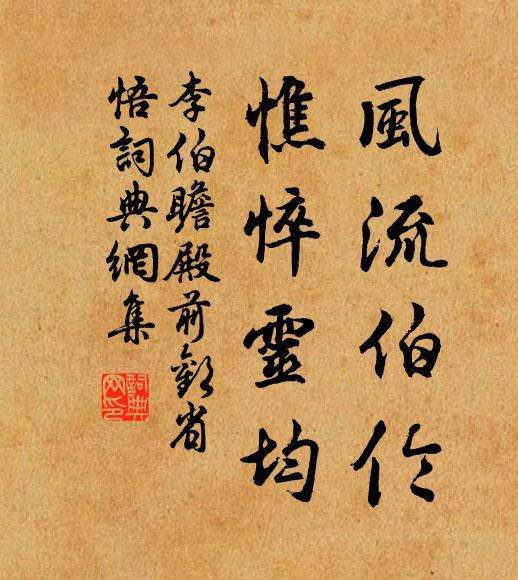 風流伯伦
憔悴靈均
李伯瞻殿前歡省
悟詞典網集
詞典
网印